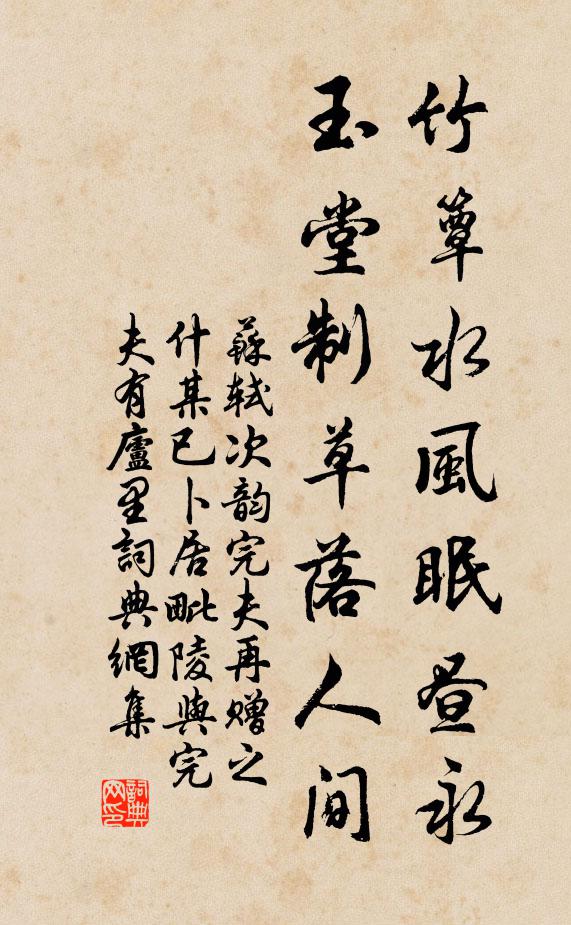 竹簟水風眠昼永
玉堂制草落人间
蘇轼次韵完夫再赠之
什某已卜居毗陵與完
夫有廬里詞典網集
詞典网印